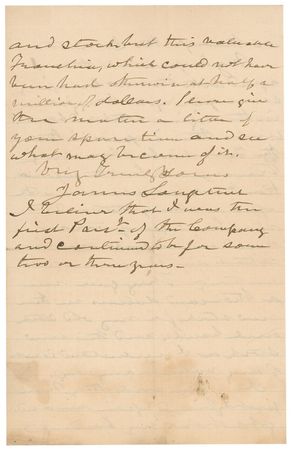 and stock but this valuable
Franchise, which could not have
been had otherwise at half a
million of dollars. Please give
this matter a little of
your spare time and see
what may become of it.
Very Truly Yours
James
I believe that I was the
first Pres't. of the Company
and continued to be for some
two or three years.